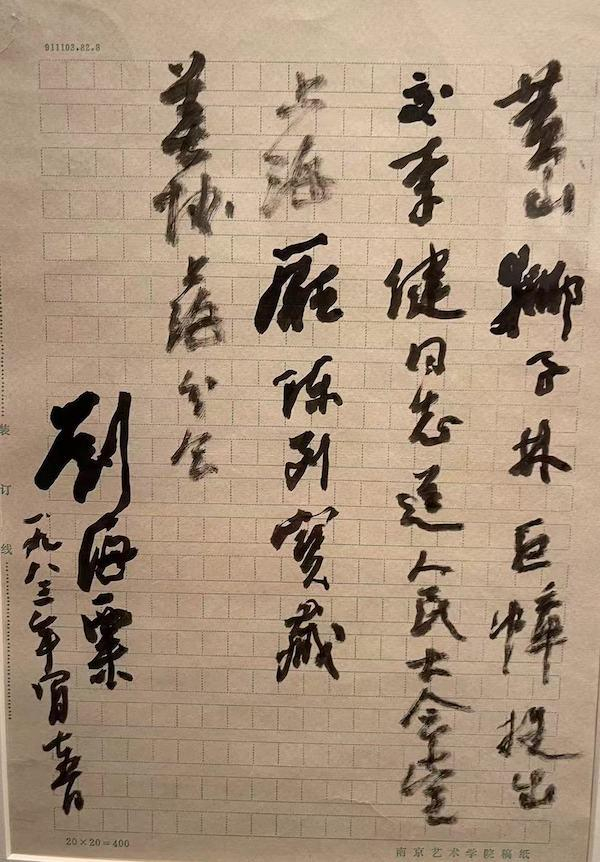 911103.82.8
黄山狮子林巨幛提出
交李健同志送人民大会堂
上海厅陈列宝藏
美协上海分会
刘海粟
一九八三年 月十五日
装订线
20×20=400
南京艺术学院稿纸